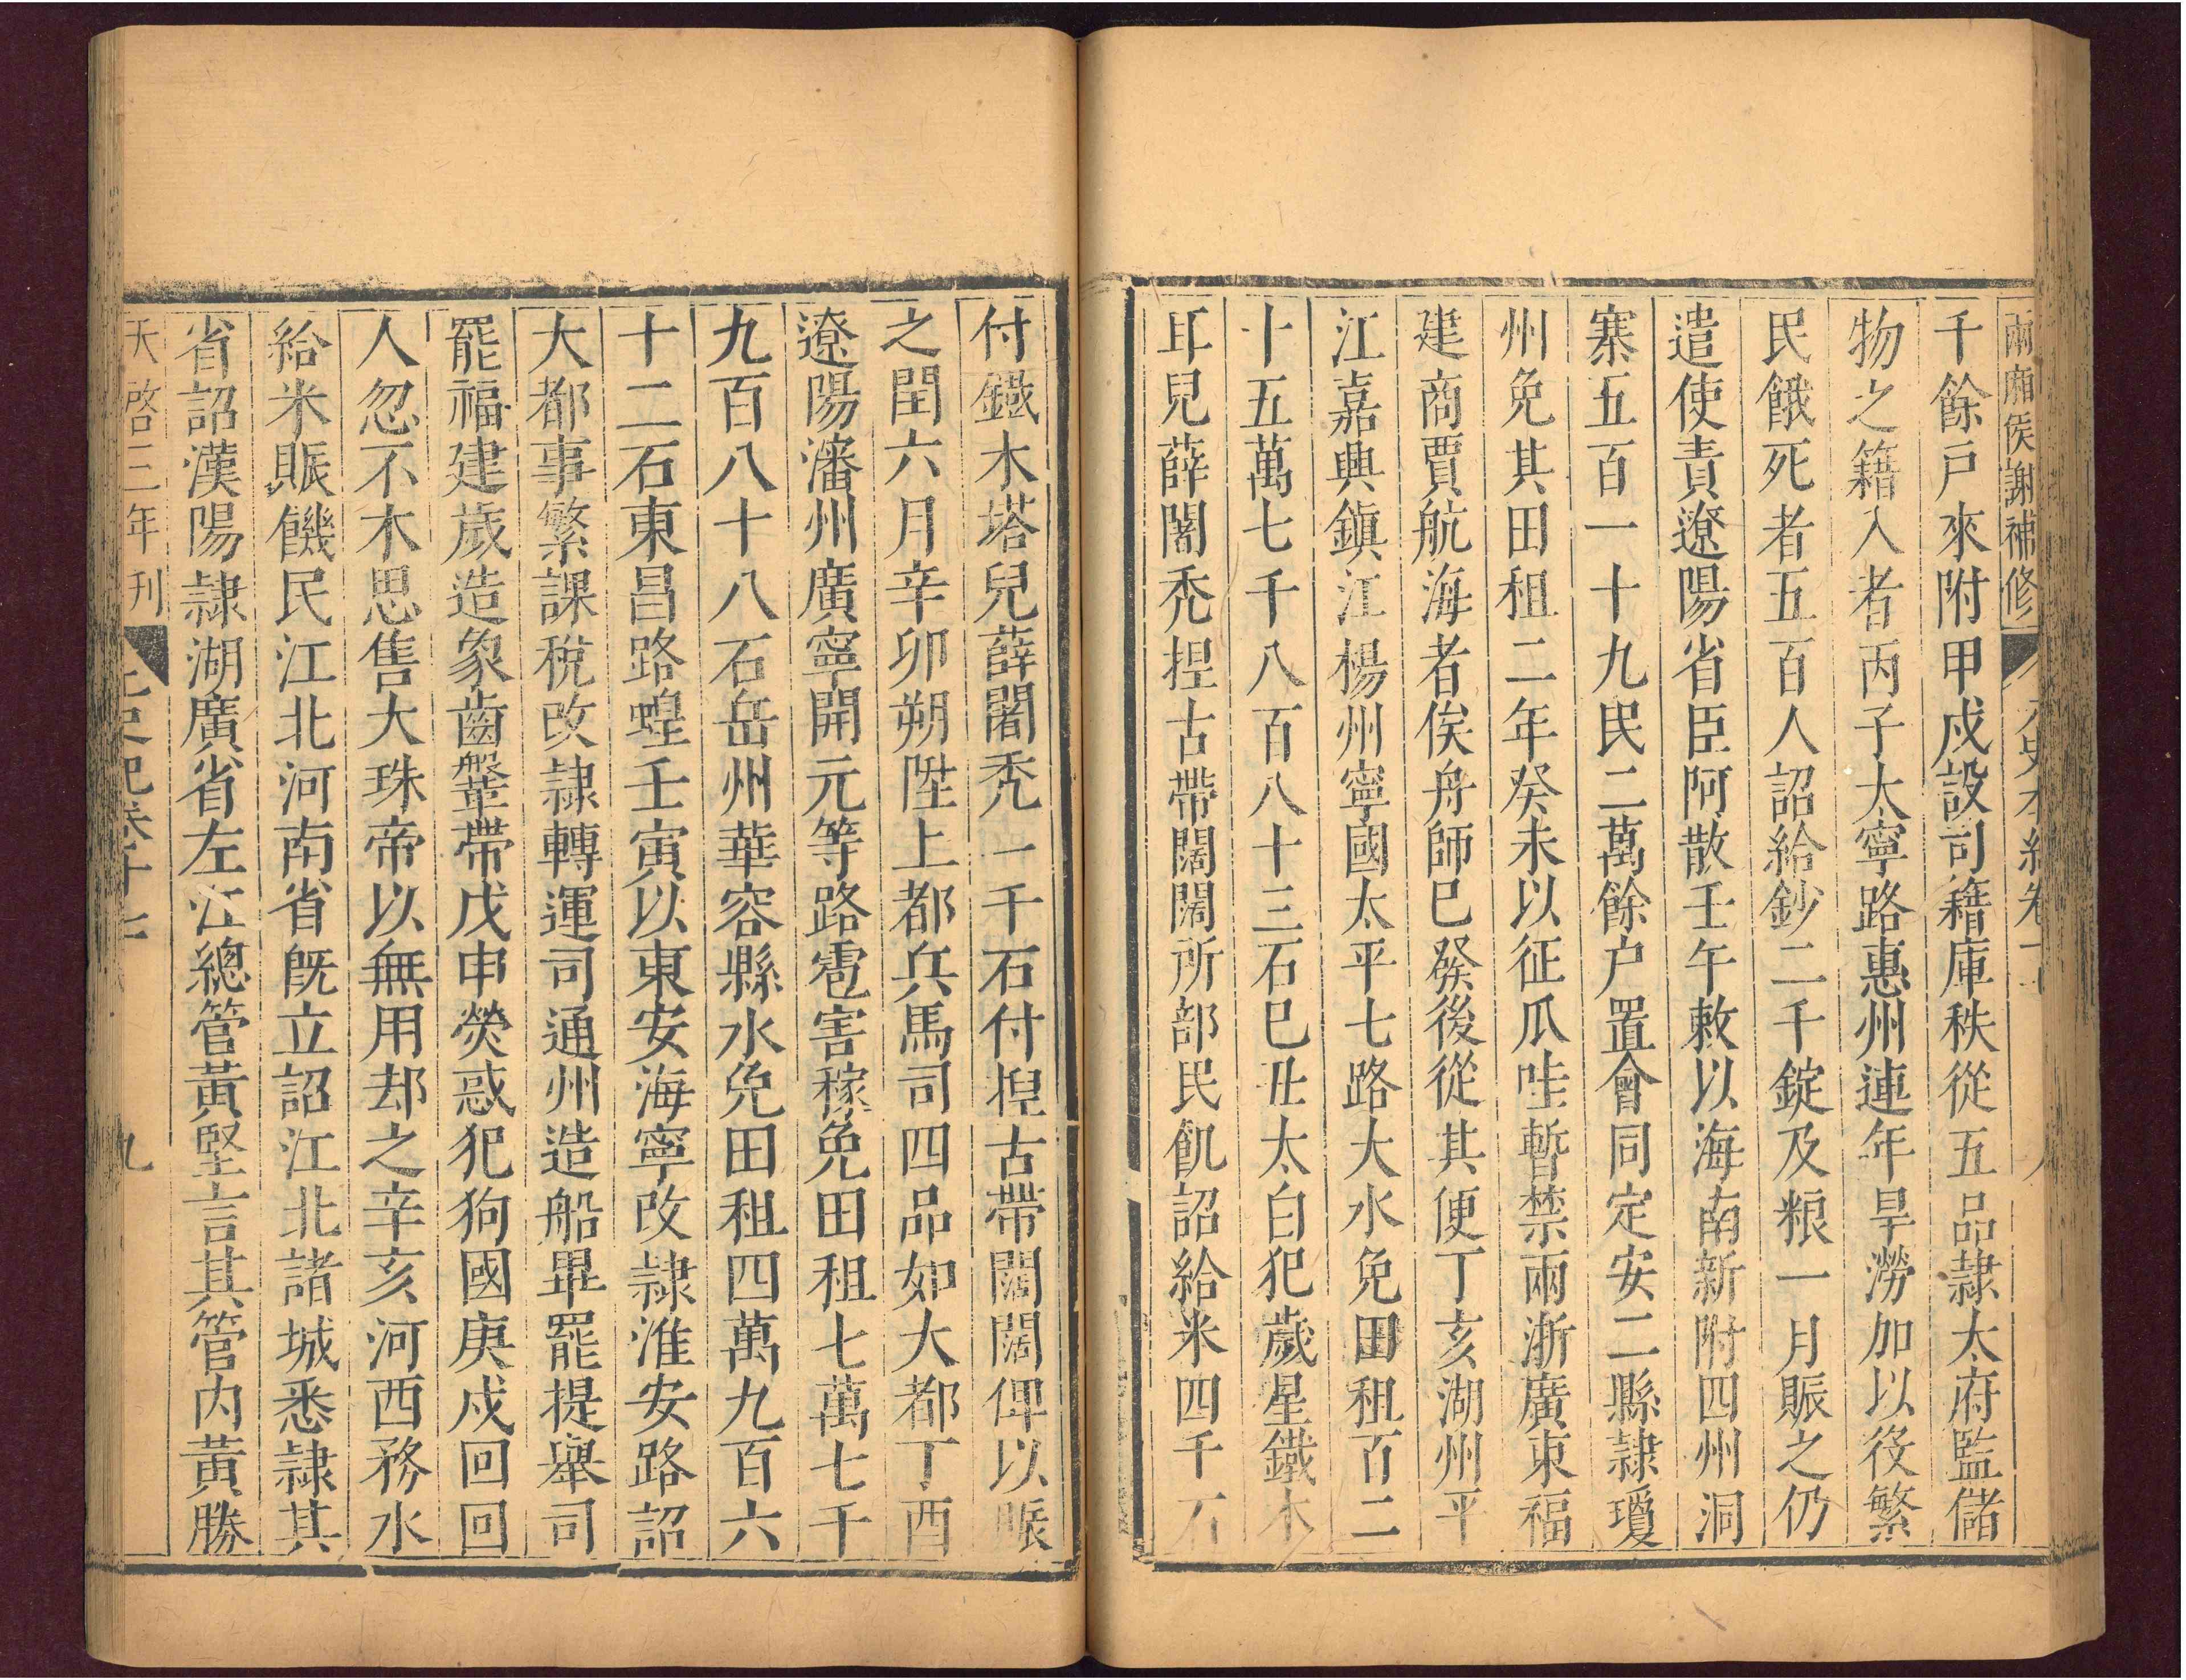 兩廂侯謝補修
千餘戶來附甲戌設司籍庫秩從五品隷太府監儲
物之籍入者丙子太寧路惠州連年旱澇加以役繁
民餓死者五百人詔給鈔二千錠及粮一月賑之仍
遣使責遼陽省臣阿散壬午敕以海南新附四州洞
寨五百一十九民二萬餘户置會同定安二縣隷瓊
州免其田租二年癸未以征瓜哇暫禁兩浙廣東福
建商賈航海者俟舟師巳發後從其便丁亥湖州平
江嘉興鎮江楊州寧國太平七路大水免田租百二
十五萬七千八百八十三石巳丑太白犯歲星鐵木
耳兒薛闍禿捏古帶闊闊所部民飢詔給米四千石
付鐵木塔兒薛闍禿一千石付揑古帶闊闊俾以賑
之閏六月辛卯朔陞上都兵馬司四品如大都丁酉
遼陽瀋州廣寧開元等路雹害稼免田租七萬七千
九百八十八石岳州華容縣水免田租四萬九百六
十二石東昌路蝗壬寅以東安海寧改隷淮安路詔
大都事繁課稅改隷轉運司通州造船畢罷提舉司
罷福建歲造象齒鞶帶戊申熒惑犯狗國庚戌回回
人忽不木思售大珠帝以無用却之辛亥河西務水
給米賑饑民江北河南省旣立詔江北諸城悉隷其
省詔漢陽隷湖廣省左江總管黃堅言其管内黃勝
天啓三年刊
九